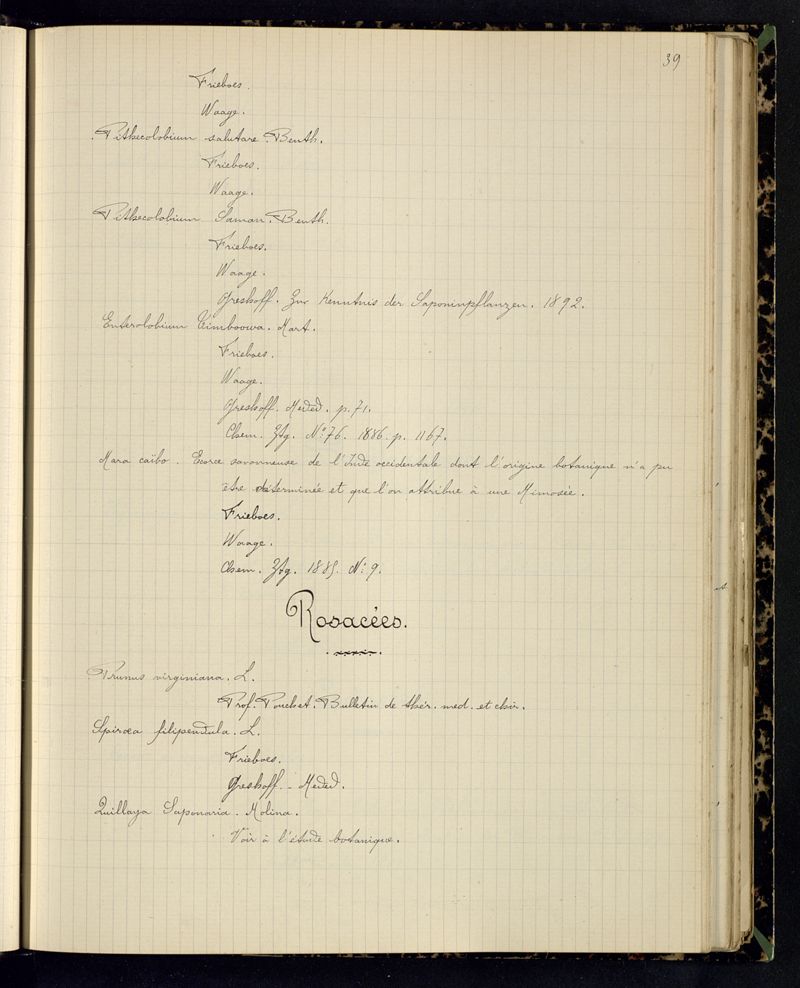 39
Frieboes.
Waage.
Pithecolobium salutare. Benth.
Frieboes.
Waage.
Pithecolobium Saman. Benth.
Frieboes.
Waage.
Greshoff. Zur Kenntnis der Saponinpflanzen. 1892.
Enterolobium Timboowa. Mart.
Frieboes.
Waage.
Greshoff. Meded. p. 71.
Chem. Ztg. No. 76. 1886. p. 1167.
Mara caïbo. Ecorce savonneuse de l'Inde occidentale dont l'origine botanique n'a pu
être déterminée et que l'on attribue à une Mimosée.
Frieboes.
Waage.
Chem. Ztg. 1885. No. 9.
Rosacées.
Prunus virginiana. L.
Prof. Pouchet. Bulletin de thér. med. et chir.
Spiræa filipendula. L.
Frieboes.
Greshoff - Meded.
Quillaya Saponaria. Molina.
Voir à l'étude botanique.